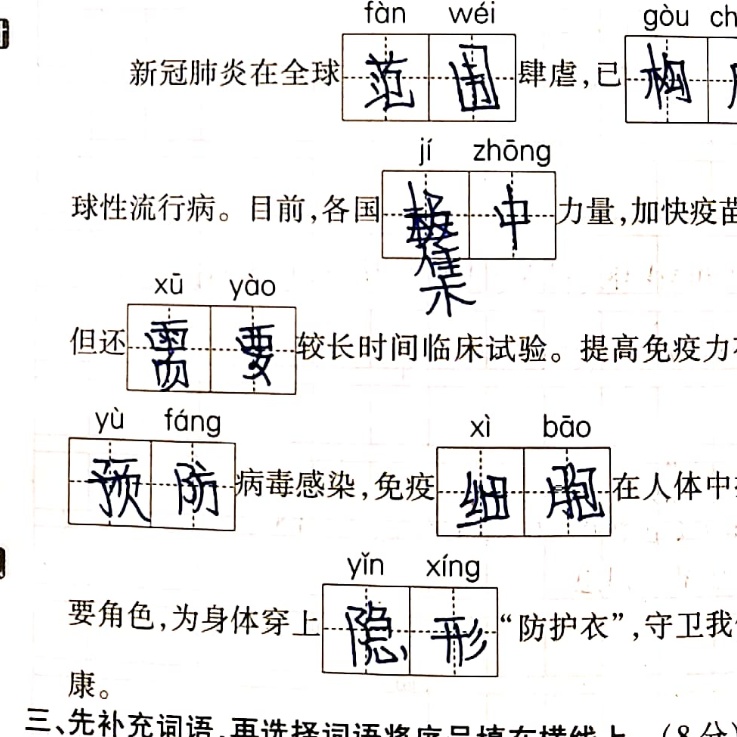 fàn wéi gòu ch
新冠肺炎在全球范围肆虐,已构
jí zhōng
球性流行病。目前,各国集中力量,加快疫苗
xū yào
但还需要较长时间临床试验。提高免疫力
yù fáng xì bāo
预防病毒感染,免疫细胞在人体中
yǐn xíng
要角色,为身体穿上隐形“防护衣”,守卫我
康。
三、先补充词语,再选择词语将序号填在横线上。(8分)